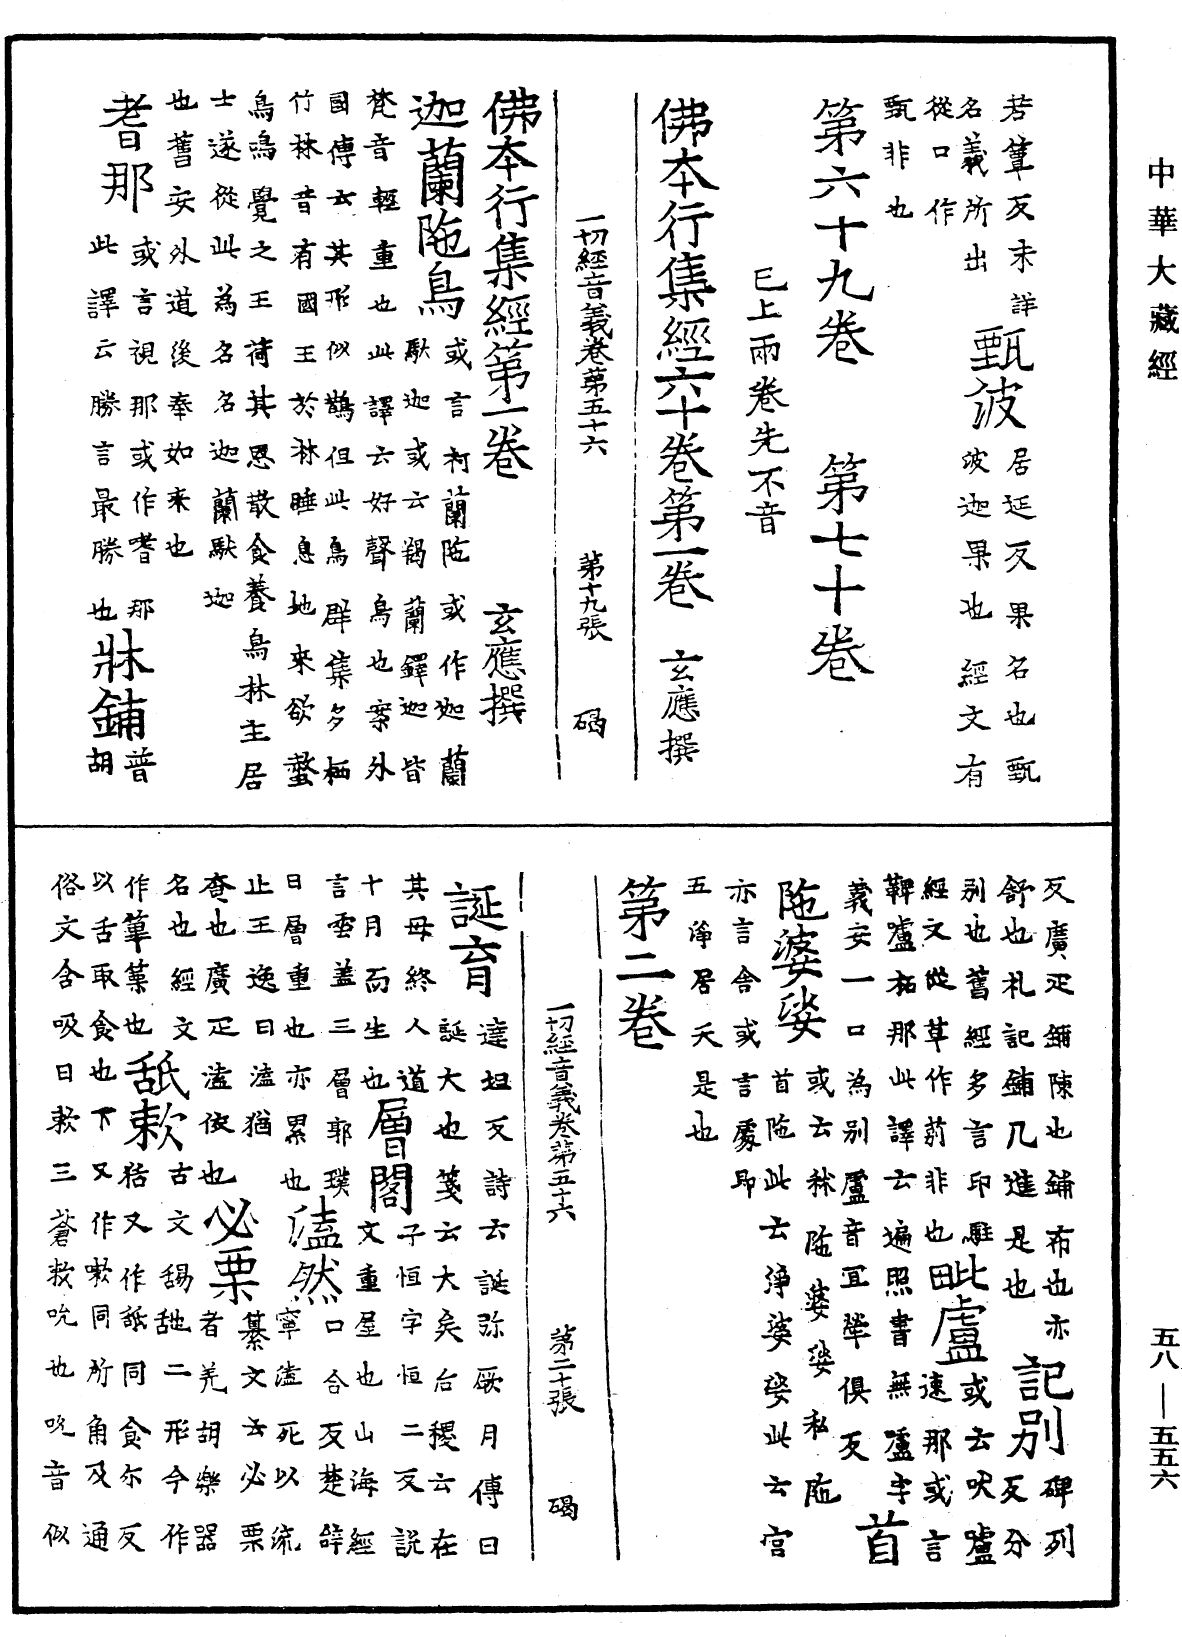 中華大藏經
若簞反未詳
名義所出
甄波
居延反果名也甄
波迦果也經文有
從口作
甄非也
第六十九卷　第七十卷
已上兩卷先不音
佛本行集經六十卷第一卷　玄應撰
一切經音義卷第五十六　第十九張　碣
佛本行集經第一卷　玄應撰
迦蘭陁鳥
或言柯蘭陁或作迦蘭
馱迦或云羯蘭鐸迦皆
梵音輕重也此譯云好聲鳥也案外
國傳云其形似鵲但此鳥群集多栖
竹林昔有國王於林睡息地來欲螫
鳥鳴覺之王荷其恩散食養鳥林主居
士遂從此為名名迦蘭馱迦
也舊安外道後奉如來也
耆那
或言視那或作嗜那
此譯云勝言最勝也
牀鋪
普
胡
反廣疋鋪陳也鋪布也亦
舒也札記鋪几進是也
記別
碑列
反分
別也舊經多言印駐
毗盧
或云吠嚧
經文從草作莂非也
遮那或言
鞞嚧柘那此譯云遍照書無嚧字
義安一口為別盧音宜犖俱反
首
陁婆娑
或云秫陁婆娑私陁
首陁此云淨婆娑此云宮
亦言舍或言處即
五淨居天是也
第二卷
一切經音義卷第五十六　第二十張　碣
誕育
達坦反詩云誕弥厥月傳曰
誕大也箋云大矣台稷云在
其母終人道子恒字恒二反說
十月而生也
層閣
文重屋也山海經
言雲蓋三層郭璞
曰層重也亦累也
溘然
口合反楚辞
寧溘死以流
止王逸曰溘猶
奄也廣疋溘依也
必栗
纂文云必栗
者羌胡樂器
名也經文
作篳篥也
舐欶
古文舓䑛二形今作
䑛又作舐同食尔反
以舌取食也下又作嗽同所角反通
俗文含吸曰欶三蒼欶吮也吮音似
五八—五五六